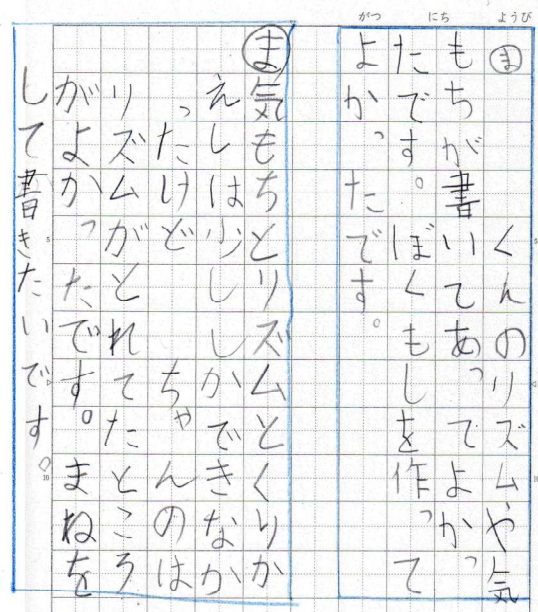 がつ にち ようび
㋮ くんのリズムや気
もちが書いてあってよかっ
たです。ぼくもしを作って
よかったです。
㋮気もちとリズムとくりか
えしは少ししかできなか
ったけど ちゃんのは
リズムがとれてたところ
がよかったです。まねを
して書きたいです。